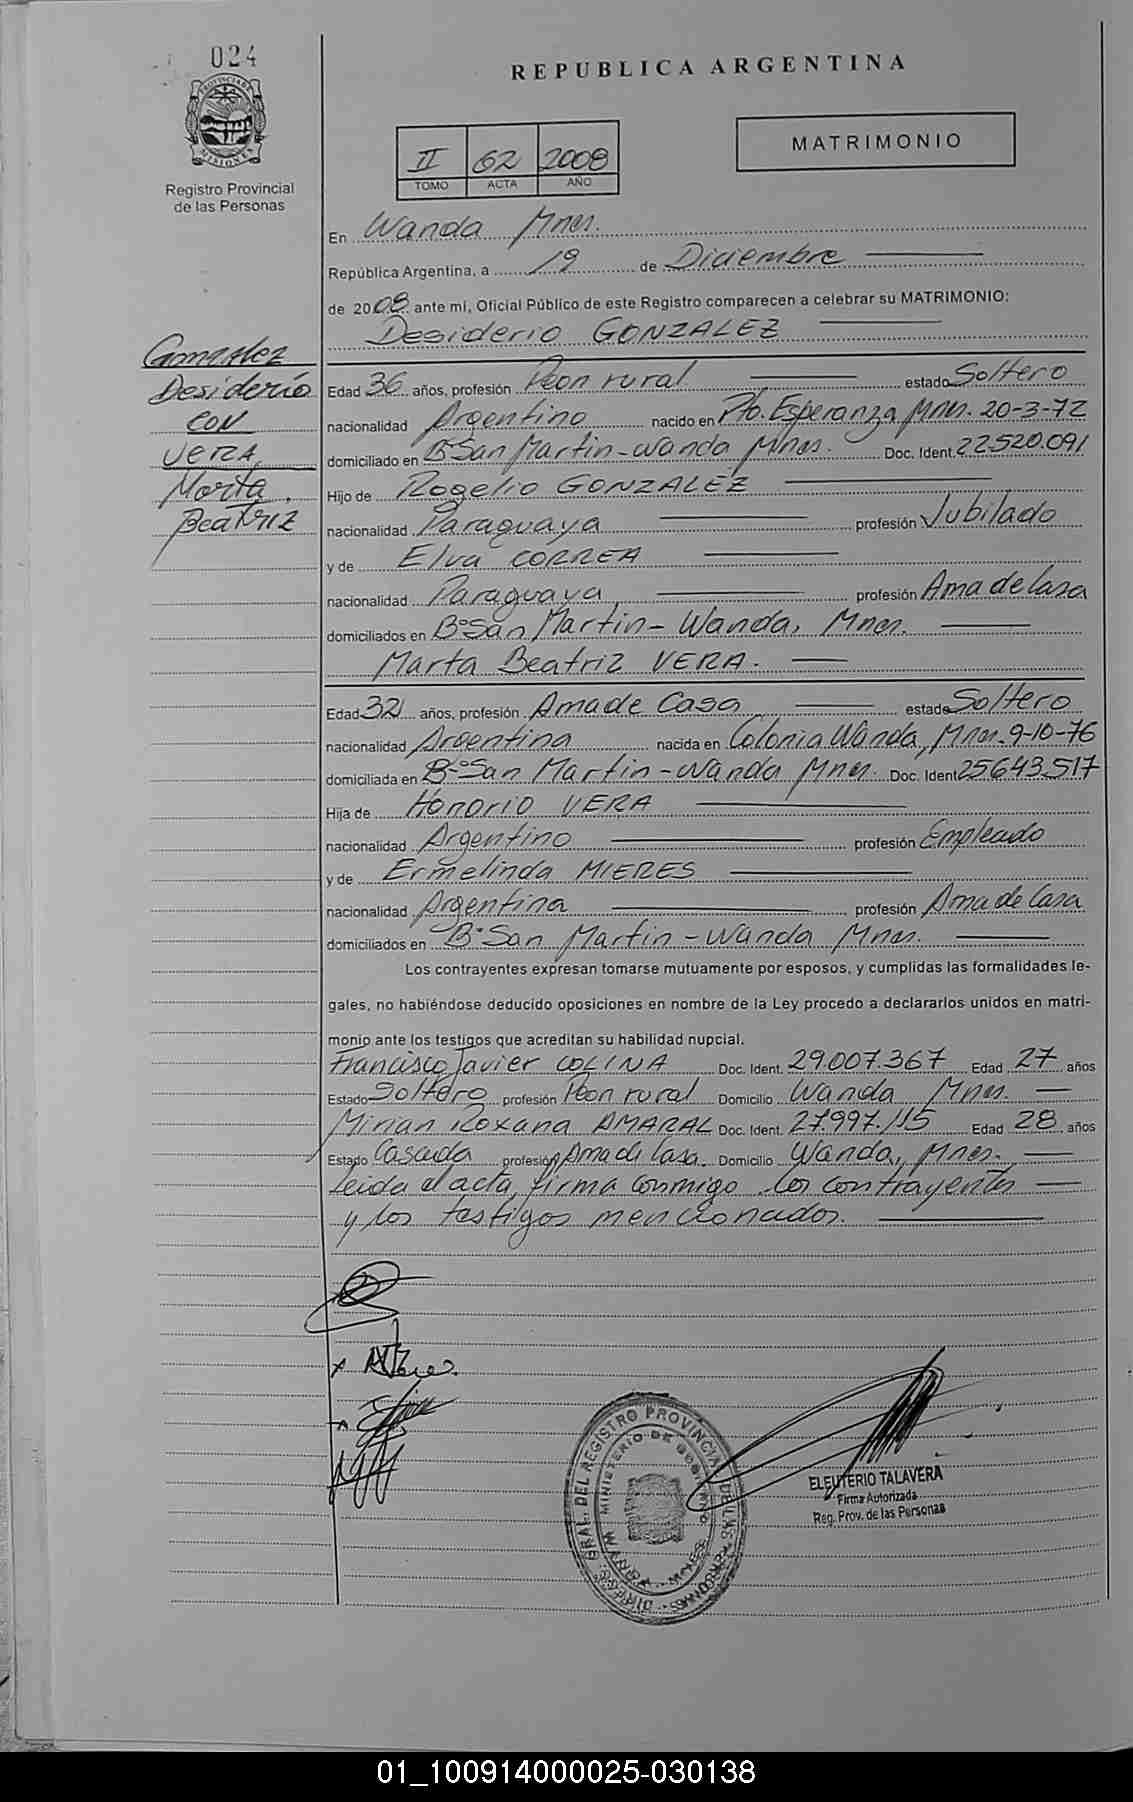 024
REPUBLICA ARGENTINA
PROVINCIA DE MISIONES
Registro Provincial
de las Personas
II 62 2008
TOMO ACTA AÑO
MATRIMONIO
En Wanda Mnes.
República Argentina, a 19 de Diciembre
de 2008 ante mi, Oficial Público de este Registro comparecen a celebrar su MATRIMONIO:
Desiderio GONZALEZ
Gonzalez
Desiderio
con
VERA
Marta
Beatriz
Edad 36 años, profesión Peon rural estado Soltero
nacionalidad Argentino nacido en Pto. Esperanza Mnes. 20-3-72
domiciliado en B° San Martin - Wanda Mnes. Doc. Ident. 22.520.091
Hijo de Rogelio GONZALEZ
nacionalidad Paraguaya profesión Jubilado
y de Elva CORREA
nacionalidad Paraguaya profesión Ama de Casa
domiciliados en B° San Martin - Wanda, Mnes.
Marta Beatriz VERA.
Edad 32 años, profesión Ama de Casa estado Soltero
nacionalidad Argentina nacida en Colonia Wanda, Mnes. 9-10-76
domiciliada en B° San Martin - Wanda Mnes. Doc. Ident 25.643.517
Hija de Honorio VERA
nacionalidad Argentino profesión Empleado
y de Ermelinda MIERES
nacionalidad Argentina profesión Ama de Casa
domiciliados en B° San Martin - Wanda Mnes.
Los contrayentes expresan tomarse mutuamente por esposos, y cumplidas las formalidades le-
gales, no habiéndose deducido oposiciones en nombre de la Ley procedo a declararlos unidos en matri-
monio ante los testigos que acreditan su habilidad nupcial.
Francisco Javier COLINA Doc. Ident. 29.007.367 Edad 27 años
Estado Soltero profesión Peon rural Domicilio Wanda Mnes.
Mirian Roxana AMARAL Doc. Ident. 27.997.115 Edad 28 años
Estado Casada profesión Ama de Casa. Domicilio Wanda, Mnes.
leida el acta, firma conmigo los contrayentes
y los testigos mencionados.
ELEUTERIO TALAVERA
Firma Autorizada
Reg. Prov. de las Personas
01_100914000025-030138